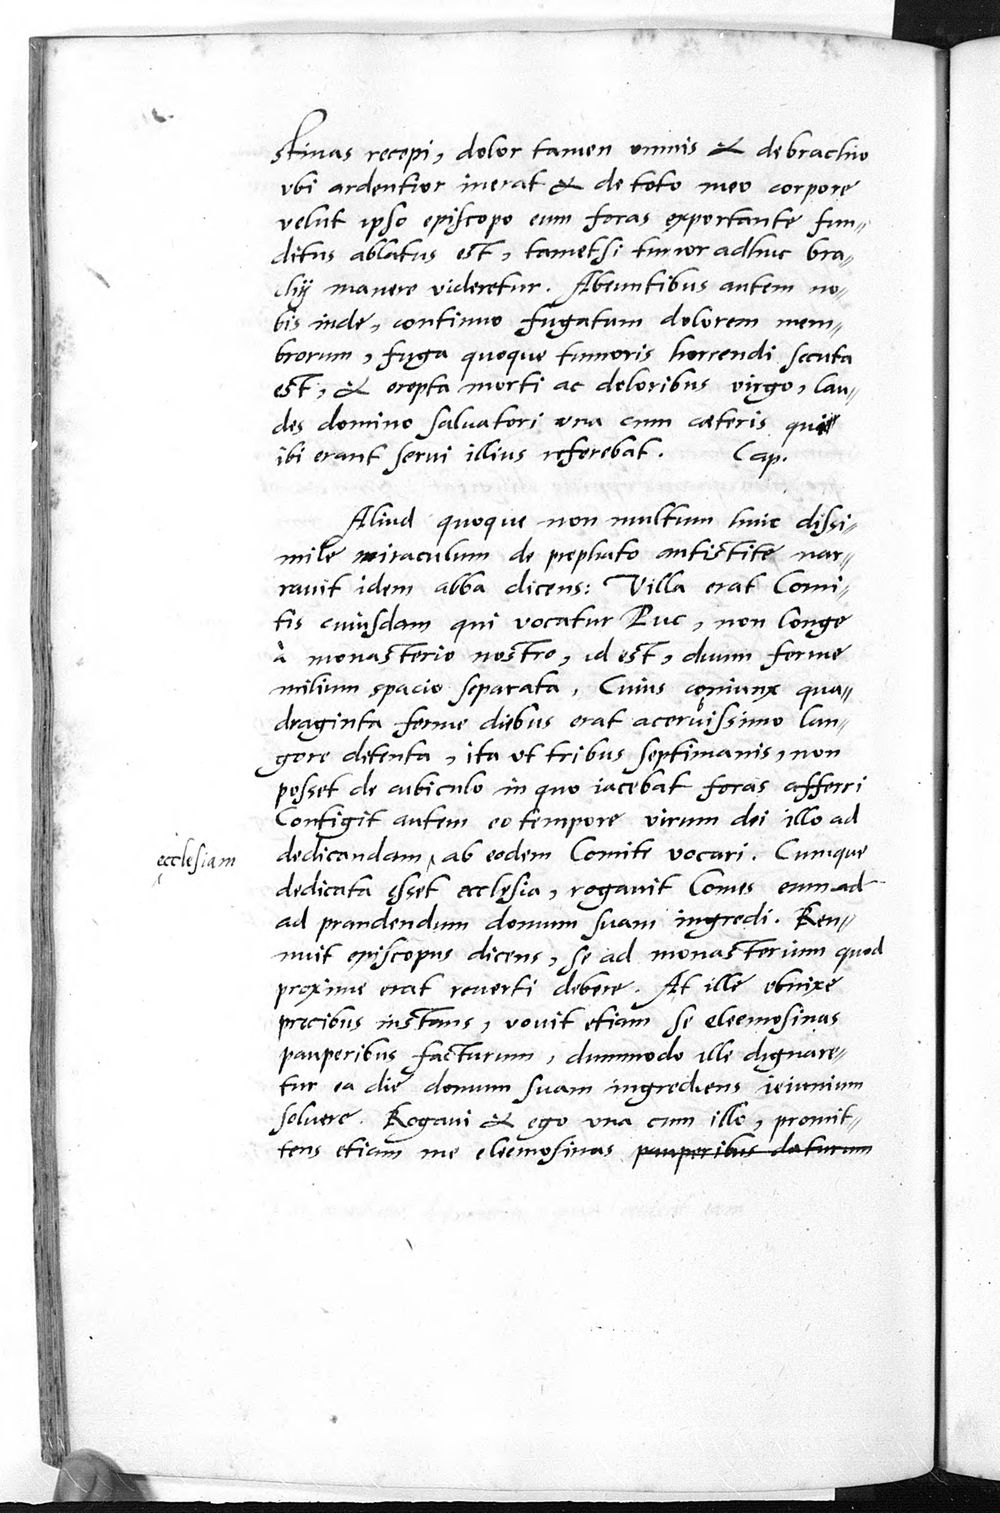 stinas recepi, dolor tamen omnis & de brachio
vbi ardentior inerat & de toto meo corpore
velut ipso episcopo eum foras exportante fun„
ditus ablatus est, tametsi tumor adhuc bra„
chij manere videretur. Abeuntibus autem no„
bis inde, continuo fugatum dolorem mem„
brorum, fuga quoque tumoris horrendi secuta
est, & erepta morti ac doloribus virgo, lau„
des domino saluatori vna cum cæteris qui
ibi erant serui illius referebat. Cap.
Aliud quoque non multum huic dissi„
mile miraculum de prephato antistite nar„
rauit idem abba dicens: Villa erat Comi„
tis cuiusdam qui vocatur Puc, non longe
à monasterio nostro, id est, duum ferme
milium spacio separata, Cuius coniunx qua„
draginta ferme diebus erat acerbissimo lan„
gore detenta, ita vt tribus septimanis, non
posset de cubiculo in quo iacebat foras afferri
Contigit autem eo tempore virum dei illo ad
ecclesiam
dedicandam ‸ ab eodem Comite vocari. Cumque
dedicata esset ecclesia, rogauit Comes eum ad
ad prandendum domum suam ingredi. Ren„
nuit episcopus dicens, se ad monasterium quod
proxime erat reuerti debere. At ille obnixe
precibus instans, vouit etiam se eleemosinas
pauperibus facturum, dummodo ille dignare„
tur ea die domum suam ingrediens ieiunium
soluere. Rogaui & ego vna cum illo, promit„
tens etiam me eleemosinas pauperibus daturum